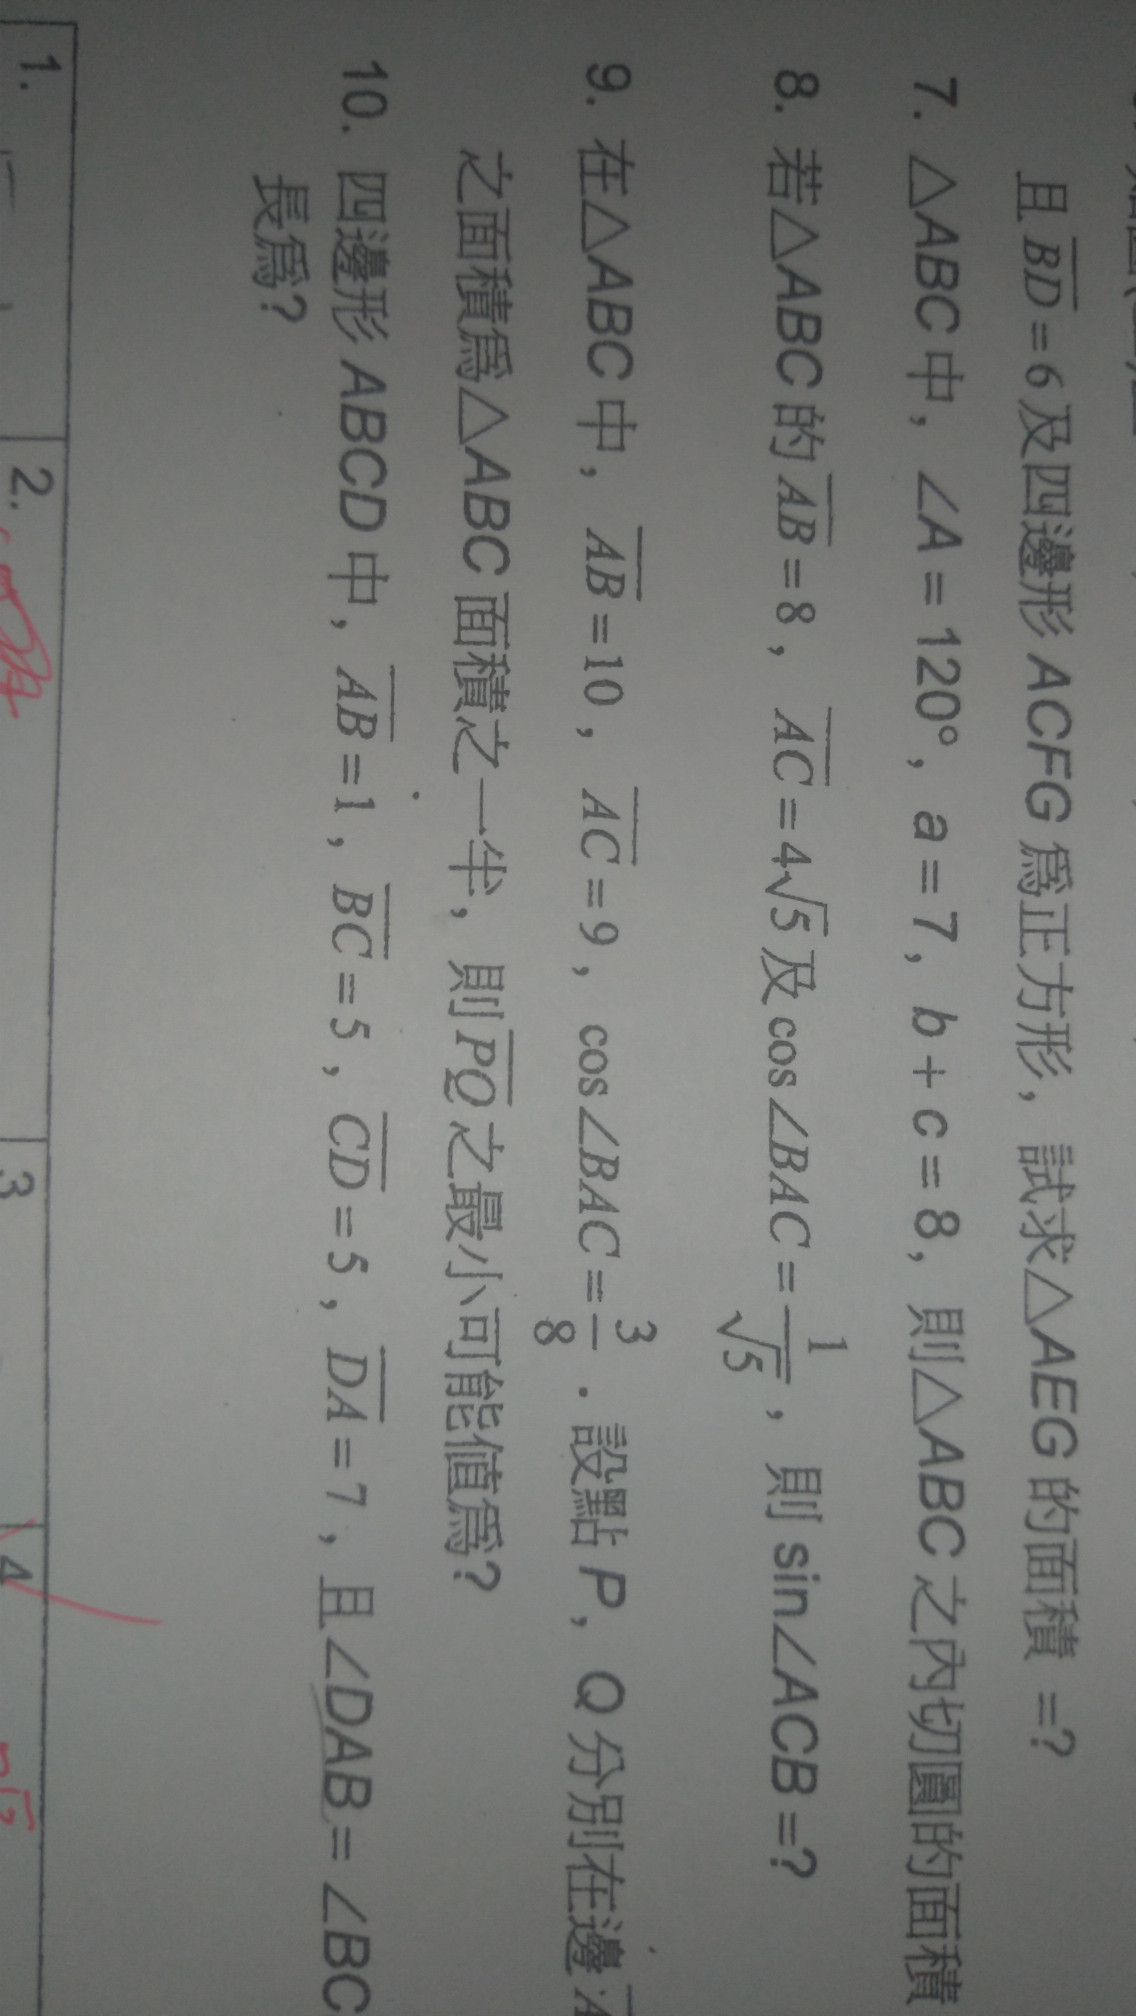 且 BD = 6 及四邊形 ACFG 為正方形，試求△AEG 的面積 =?
7. △ABC 中，∠A = 120°, a = 7, b + c = 8, 則△ABC 之內切圓的面積
8. 若△ABC 的 AB = 8, AC = 4√5 及 cos∠BAC = 1/√5, 則 sin∠ACB =?
9. 在△ABC 中，AB = 10, AC = 9, cos∠BAC = 3/8. 設點 P, Q 分別在邊 A
之面積為△ABC 面積之一半，則 PQ 之最小可能值為?
10. 四邊形 ABCD 中，AB = 1, BC = 5, CD = 5, DA = 7, 且∠DAB = ∠BC
長為?
1.
2.
3
4